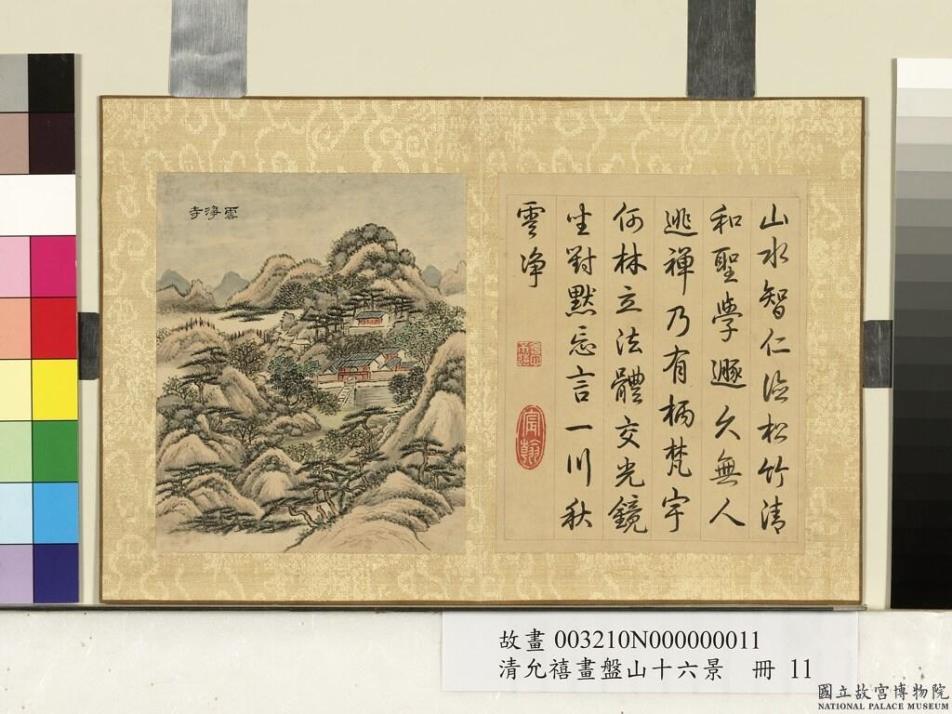 雲淨寺
山水智仁德松竹清
和聖學遯久無人
逃禪乃有柄梵宇
何林立法體交光鏡
坐對默忘言一川秋
雲净
宸翰
故畫 003210N000000011
清允禧畫盤山十六景 冊 11
國立故宮博物院
NATIONAL PALACE MUSEUM